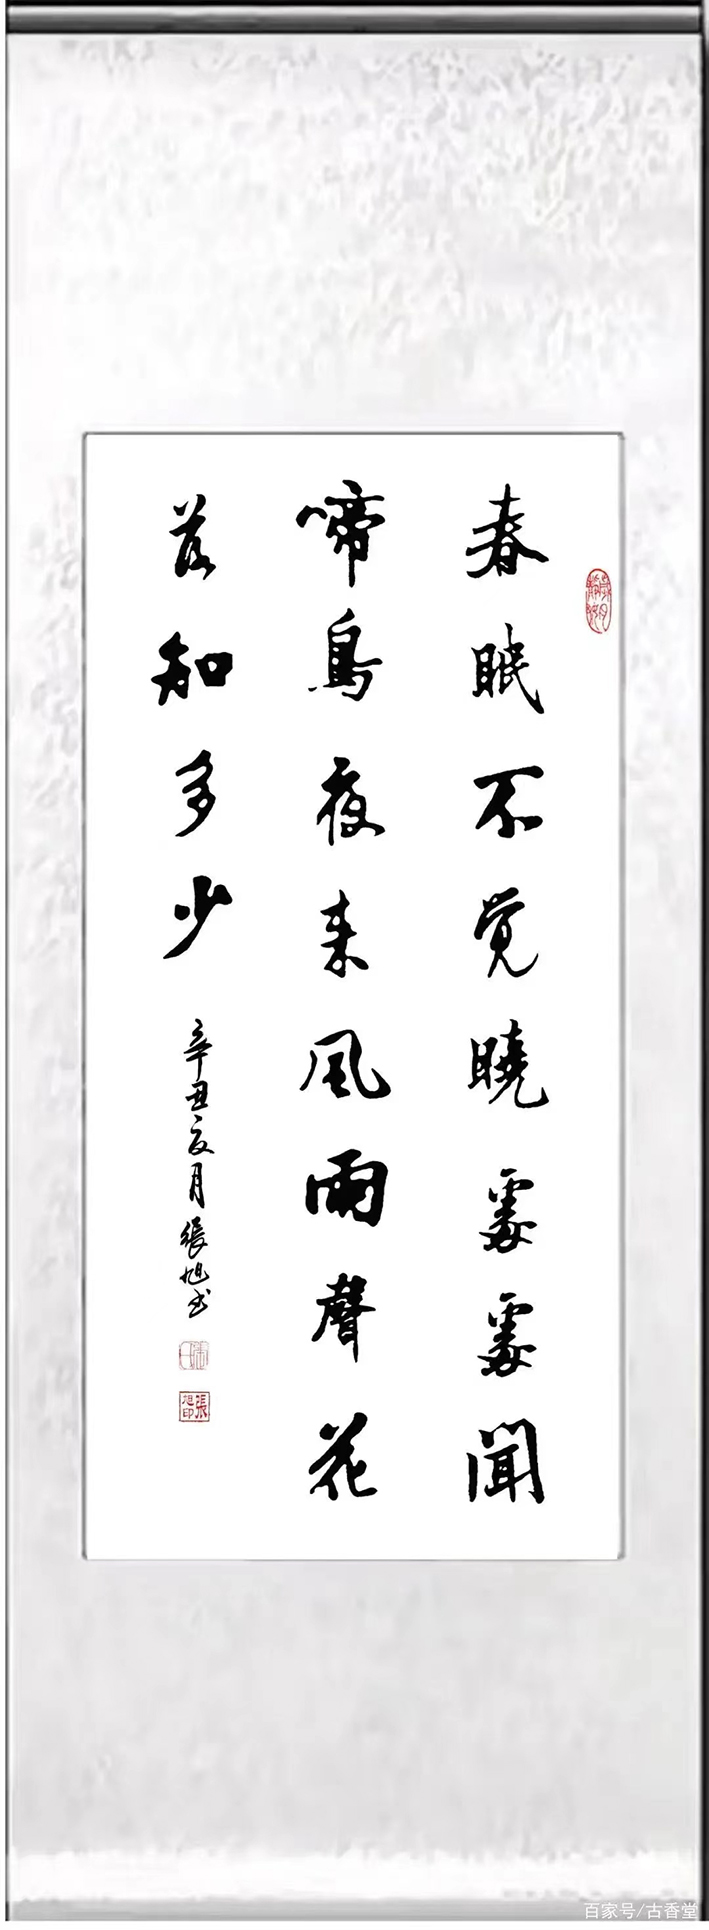 春眠不觉曉處處聞
啼鳥夜来風雨聲花
落知多少
辛丑亥月張旭书
張旭印
百家号/古香堂